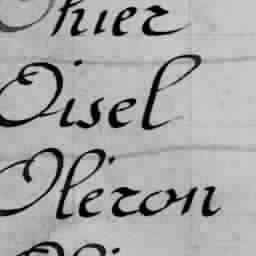 Ohier
Oisel
Oléron